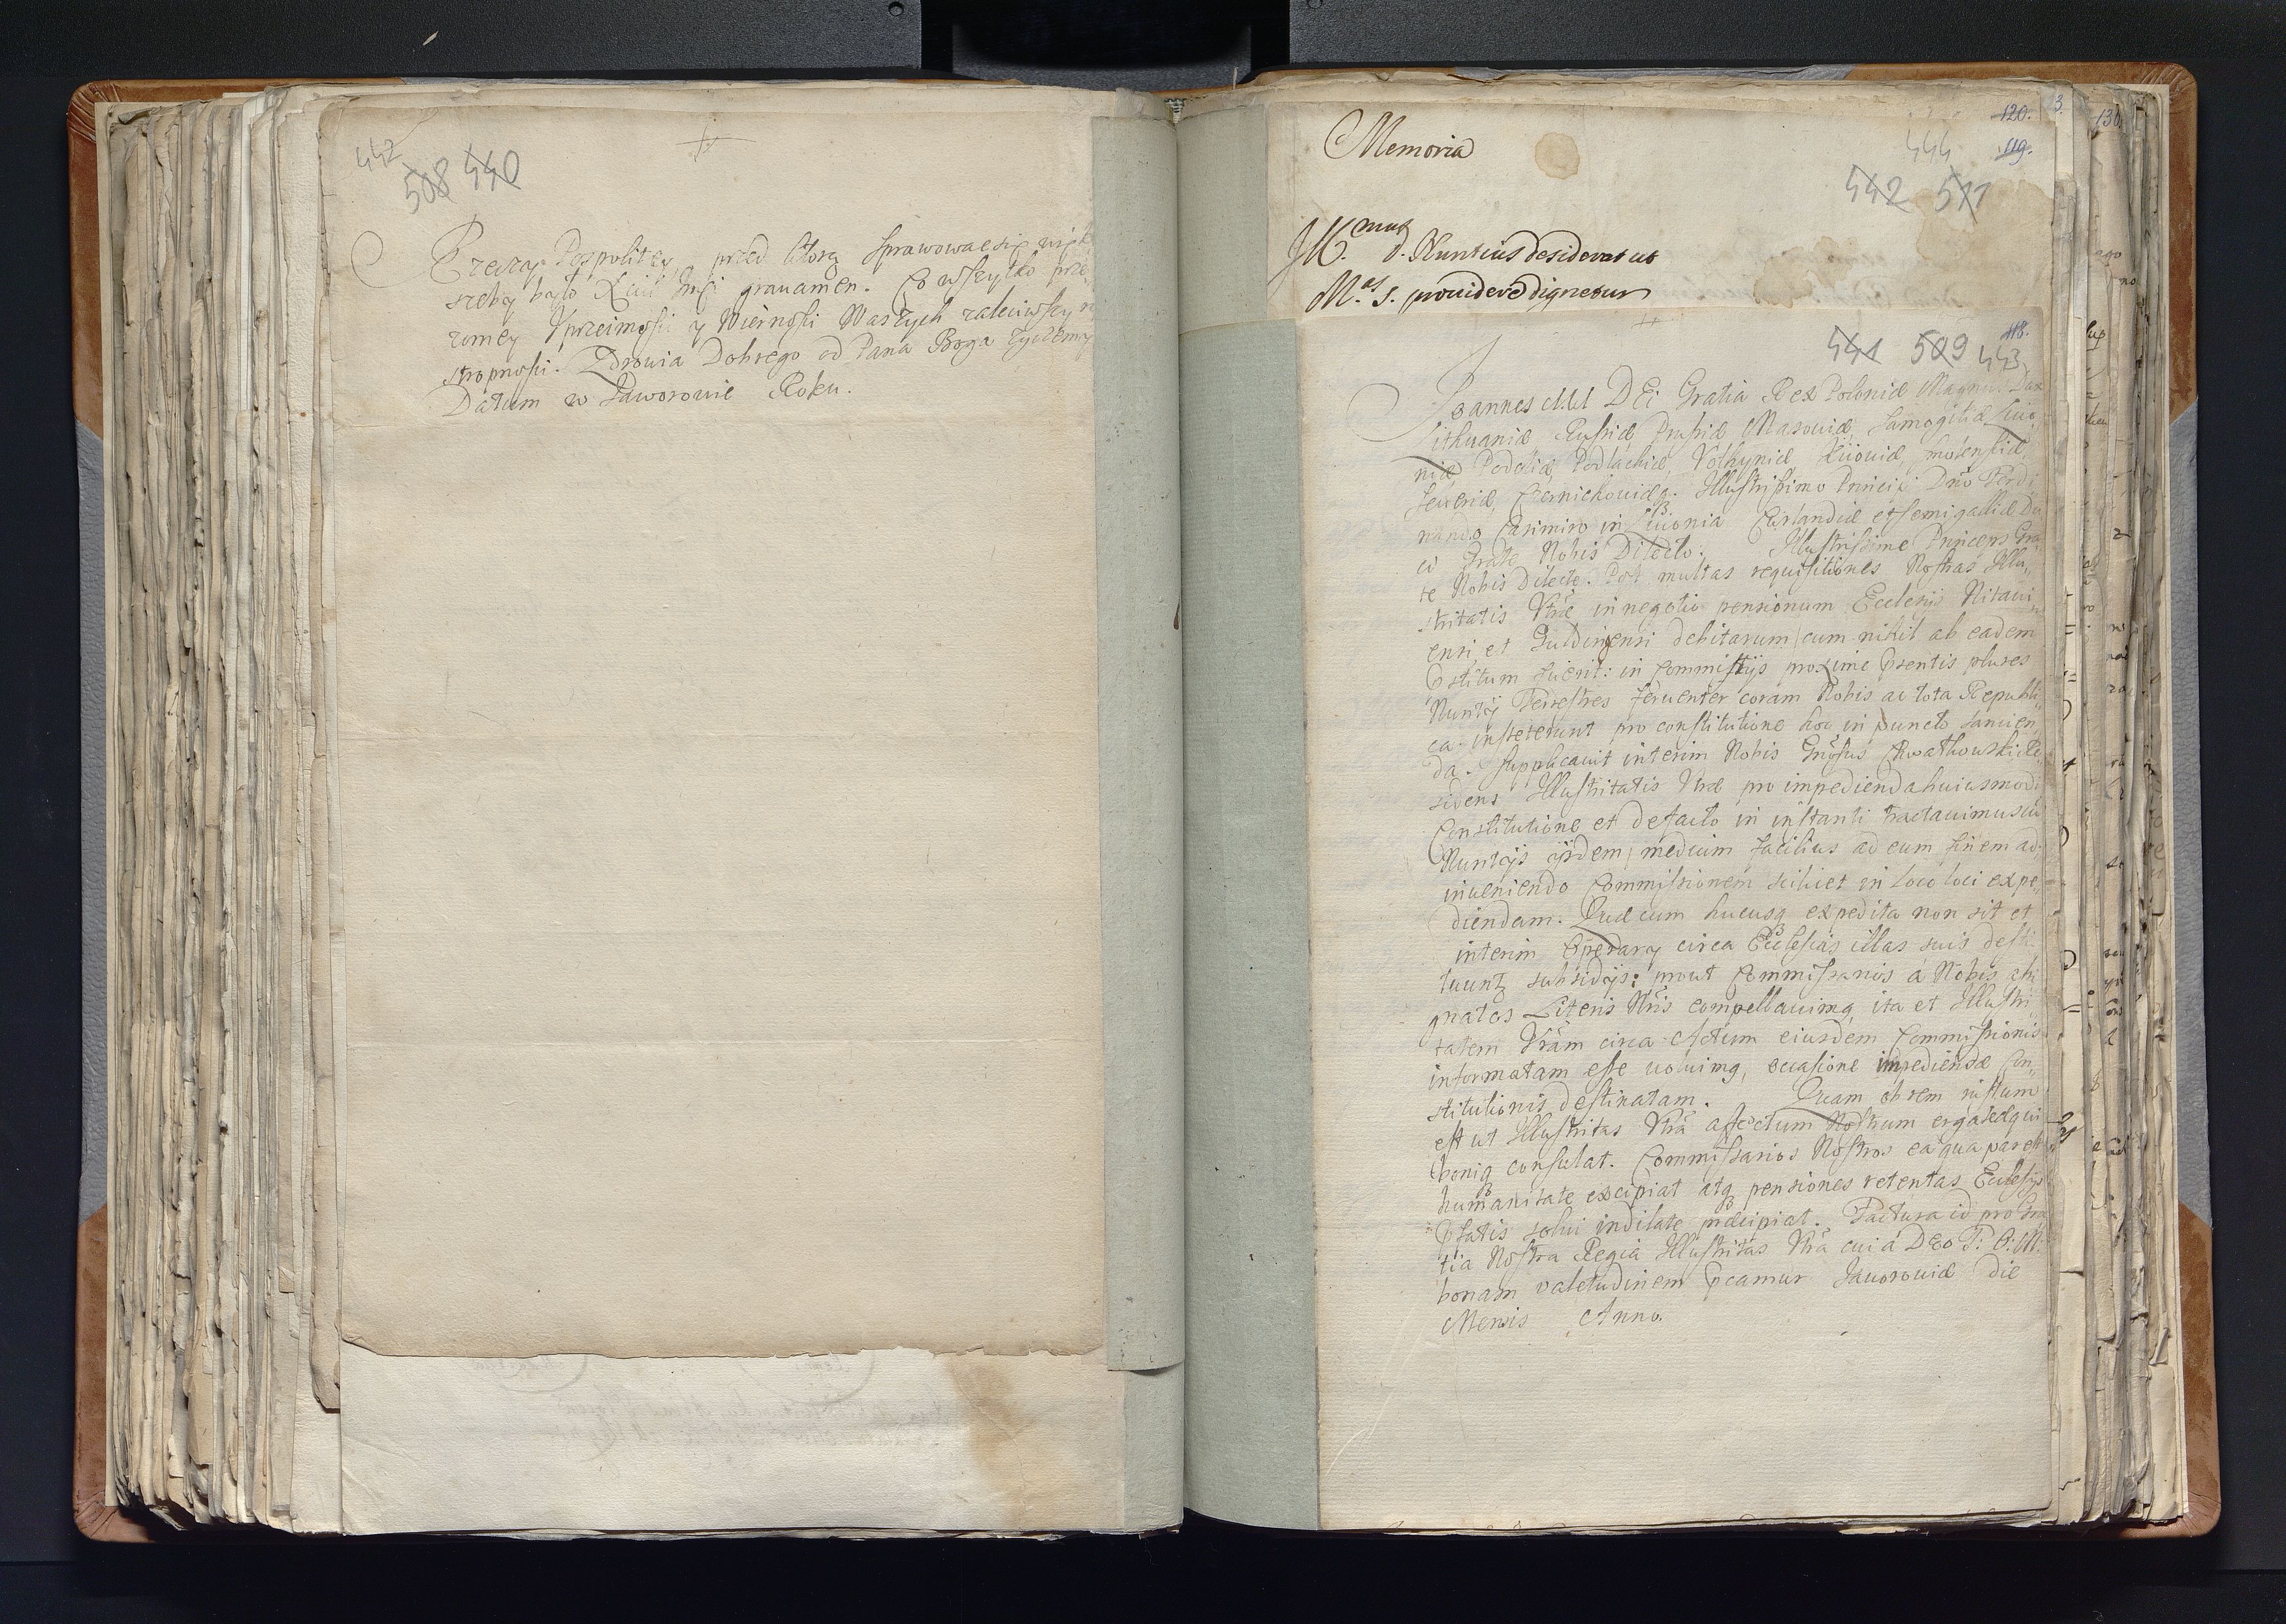 442
508 440
Rzeczy Pospolitey przed ktorą sprawować się
szeby było Xciu Jmci gravamen. Co wszytko prze
zorney Vprzeimosci y Wiernosci Waszych zaleciwszy
stropnosci. Zdrowia Dobrego od Pana Boga życzemy
Datum w Jaworowie Roku.
120.
Memoria
444 119.
442 511
Ill.mus D. Nuntius desiderat ut
M.as S. prouidere dignetur
118.
441 509 443
Joannes III DEi Gratia Rex Poloniæ Magnus Dux
Lithuaniæ Russiæ Prussiæ Masouiæ Samogitiæ Liuo,,
niæ, Podoliæ, Podlachiæ, Volhyniæ Kiiouiæ, Smolensiæ,
Seueriæ, Czernichouiæq. Illustrissimo Principi Dno Ferdi
nando Casimiro in Liuonia Curlandiæ et Semigalliæ Du
ci Grate Nobis Dilecto. Illustrissime Princeps Gra,,
te Nobis Dilecte. Post multas requisitiones Nostras Illu,,
stritatis Vræ in negotio pensionum Ecclesijs Mitaui
ensi et Guldingensi debitarum cum nihil ab eadem
pstitum fuerit: in Commitijs proxime psentis plures
Nuntij Terrestres feruenter coram Nobis ac tota Republi,,
ca insteterunt pro constitutione hoc in puncto sancien,,
da. Supplicauit interim Nobis Gnosus Chwatkowski Re
sidens Illustritatis Vræ pro impedienda huiusmodi
Constitutione et de facto in instanti tractauimus cu
Nuntijs ijsdem, medium facilius ad eum finem ad,,
inueniendo Commissionem scilicet in loco loci expe,,
diendam. Quæ cum hucusq expedita non sit et
interim Operarij circa Ecclesias illas suis desti
tuunt subsidijs: prout Commissarios a Nobis assi
gnatos Literis Nris compellauimq, ita et Illustri
tatem Vram circa Actum eiusdem Commissionis
informatam esse uoluimq, occasione impediendæ Con,,
stitutionis destinatam. Quam ob rem iustum
est ut Illustritas Vra affectum Nostrum erga se æqui
boniq consulat. Commissarios Nostros ea qua par est
humanitate excipiat atq pensiones retentas Ecclesijs
pfatis solui indilate præcipiat. Factura id pro Gra
tia Nostra Regia Illustritas Vra cui a DEo T: O: M:
bonam valetudinem pcamur Jauorouiæ die
Mensis Anno.